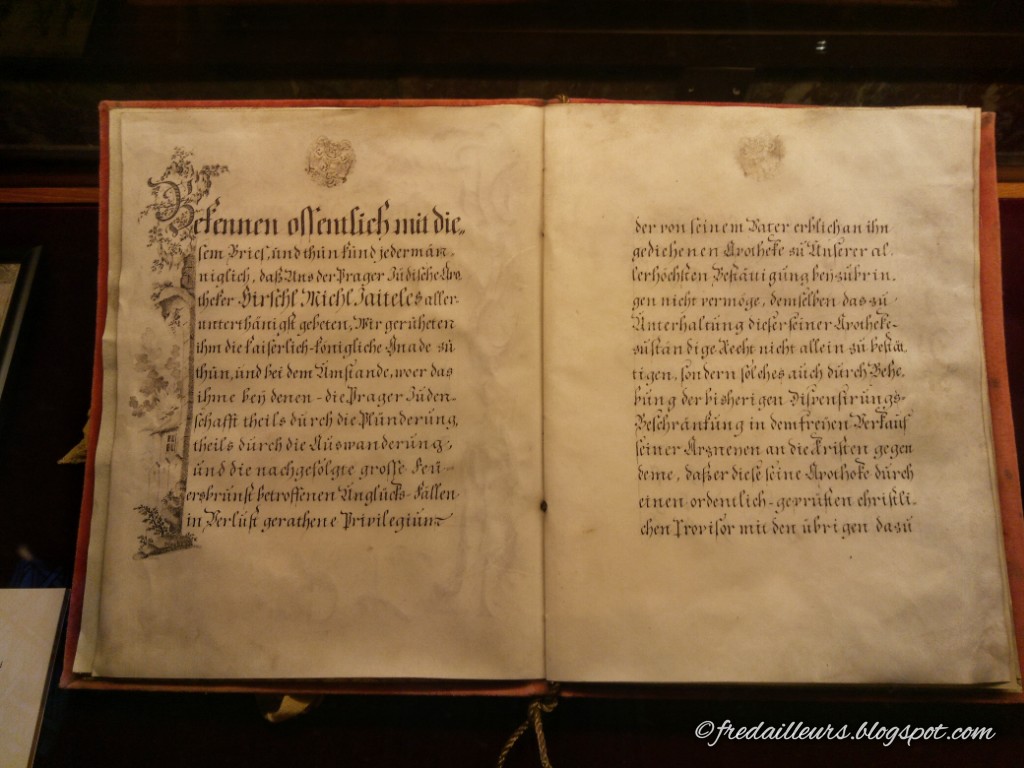 Bekennen offentlich mit die„
sem Brief, und thun kund jedermän,
niglich, daß Uns der Prager Jüdische Apo
theker Hirschl Michl Jaiteles aller:
unterthänigst gebeten, Wir geruheten
ihm die kaiserlich-königliche Gnade zu
thun, und bei dem Umstande, woer das
ihme beÿ denen - die Prager Juden-
schafft theils durch die Plünderung,
theils durch die Auswanderung,
und die nachgefolgte grosse Feu-
ersbrunst betroffenen Unglücks-Fällen
in Verlust gerathene Privilegium
der von seinem Vater erblich an ihn
gediehenen Apotheke zu Unserer al,
lerhöchsten Bestättigung beÿzubrin,
gen nicht vermöge, demselben das zu
Unterhaltung dieser seiner Apotheke-
zuständige Recht nicht allein zu bestät,
tigen, sondern solches auch durch Behe,
bung der bisherigen Dispensirungs-
Beschränkung in dem freÿen Verkauf
seiner Arzneÿen an die Kristen gegen
deme, daß er diese seine Apotheke durch
einen ordentlich-geprüften christli,
chen Provisor mit den übrigen dazu
©fredailleurs.blogspot.com